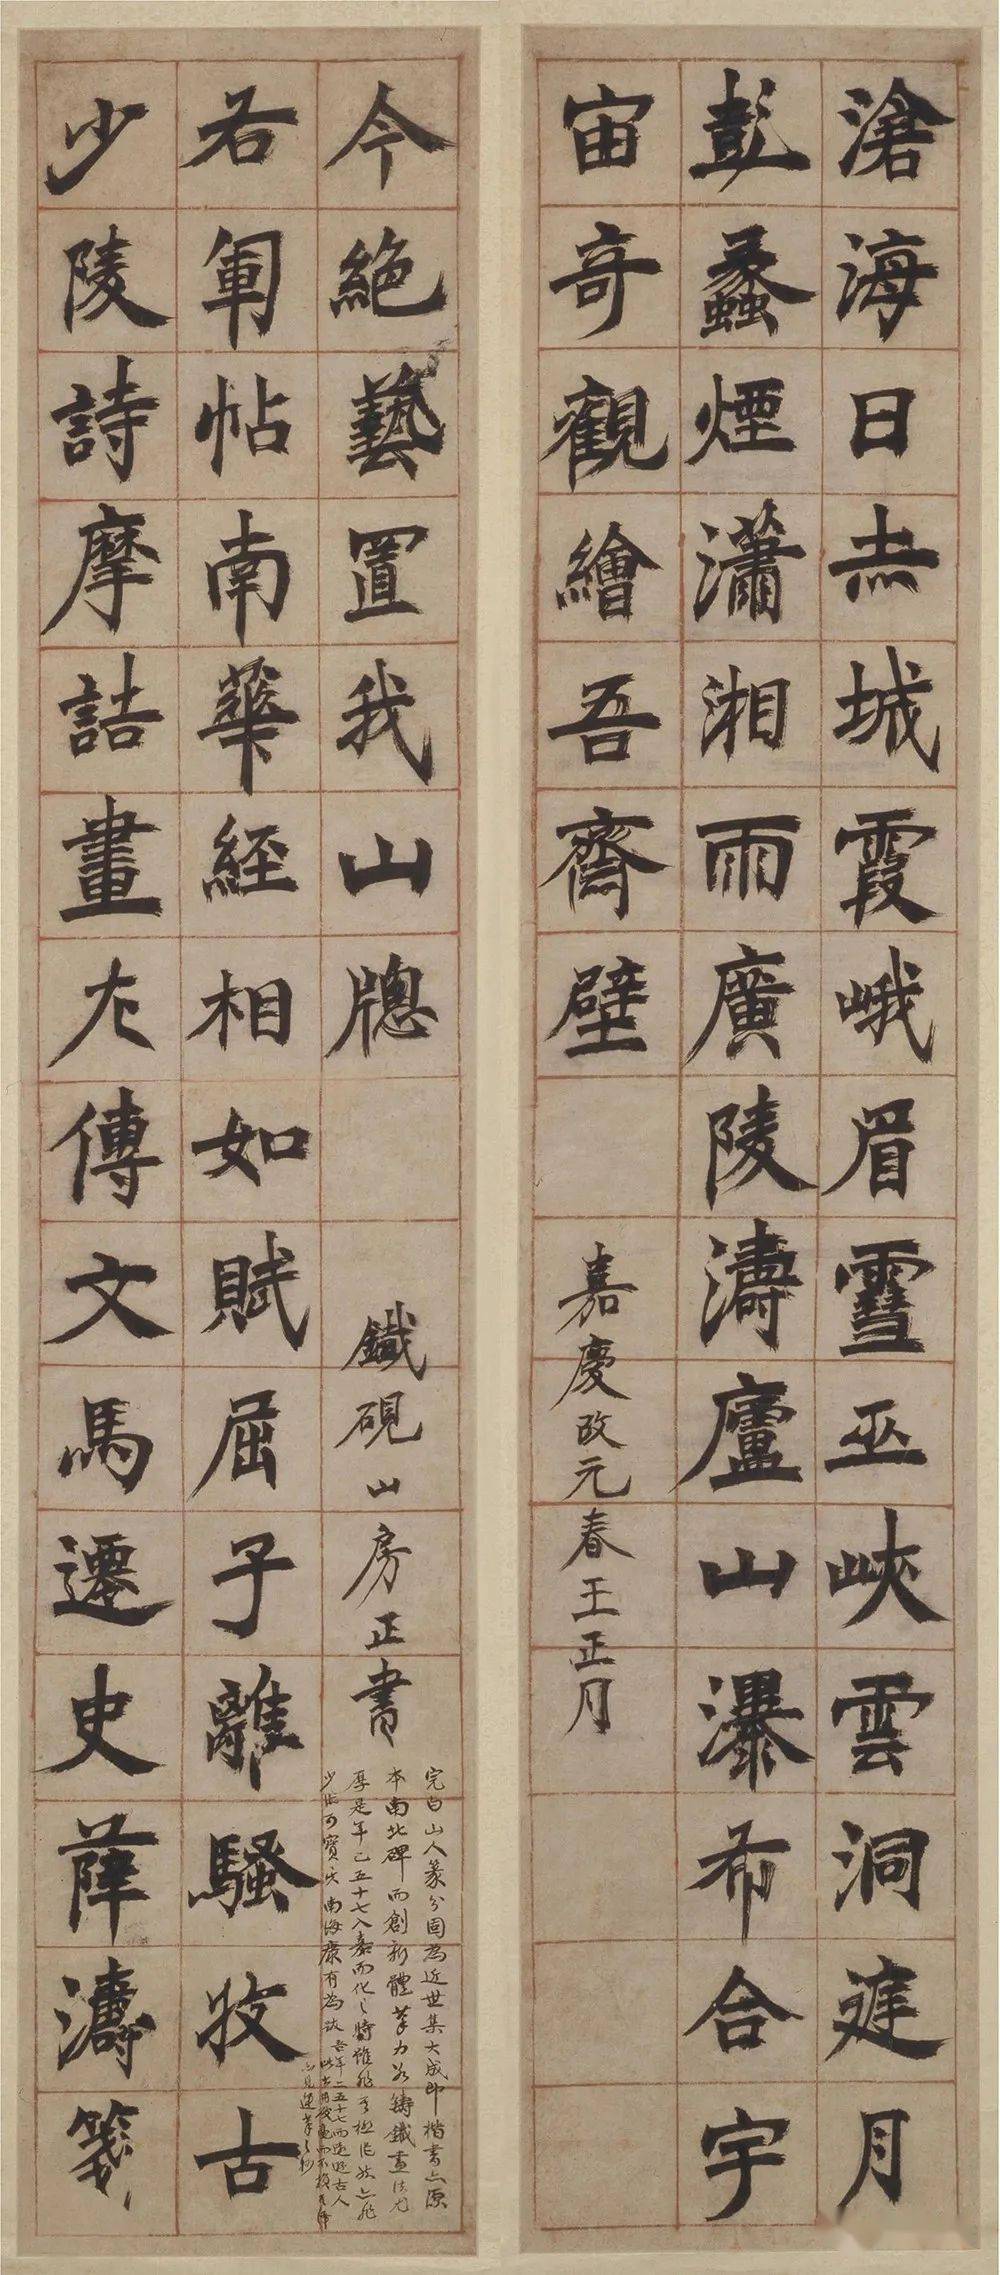 滄海日赤城霞峨眉雪巫峽雲洞庭月
彭蠡煙瀟湘雨廣陵濤廬山瀑布合宇
宙奇觀繪吾齋壁
嘉慶改元春王正月
少陵詩摩詰畫左傳文馬遷史薛濤箋
右軍帖南華經相如賦屈子離騷收古
今絕藝置我山牕
鐵硯山房正書
完白山人篆分固為近世集大成即楷書亦原
本南北碑而創新體筆力若鑄鐵畫法尤
厚是年已五十七入嘉而化之時
少作可寶也南海康有為跋